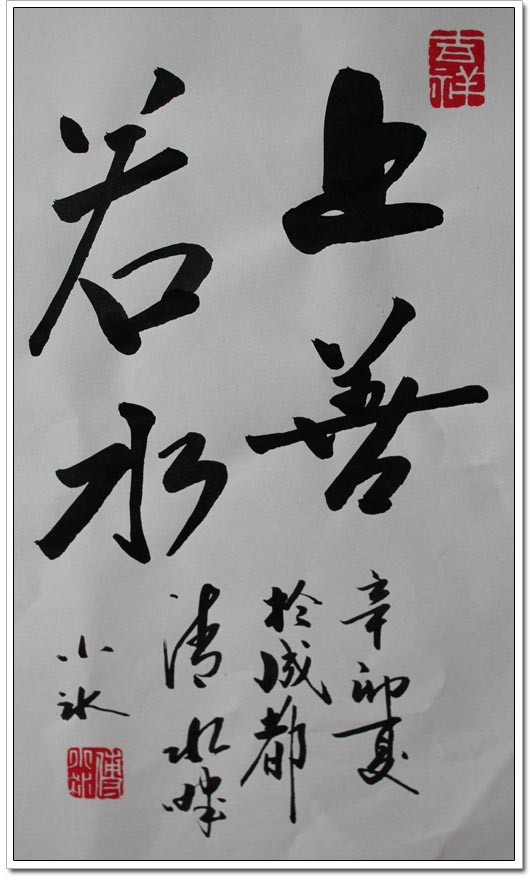 吉祥
上善
若水
辛卯夏
於成都
清水畔
小冰